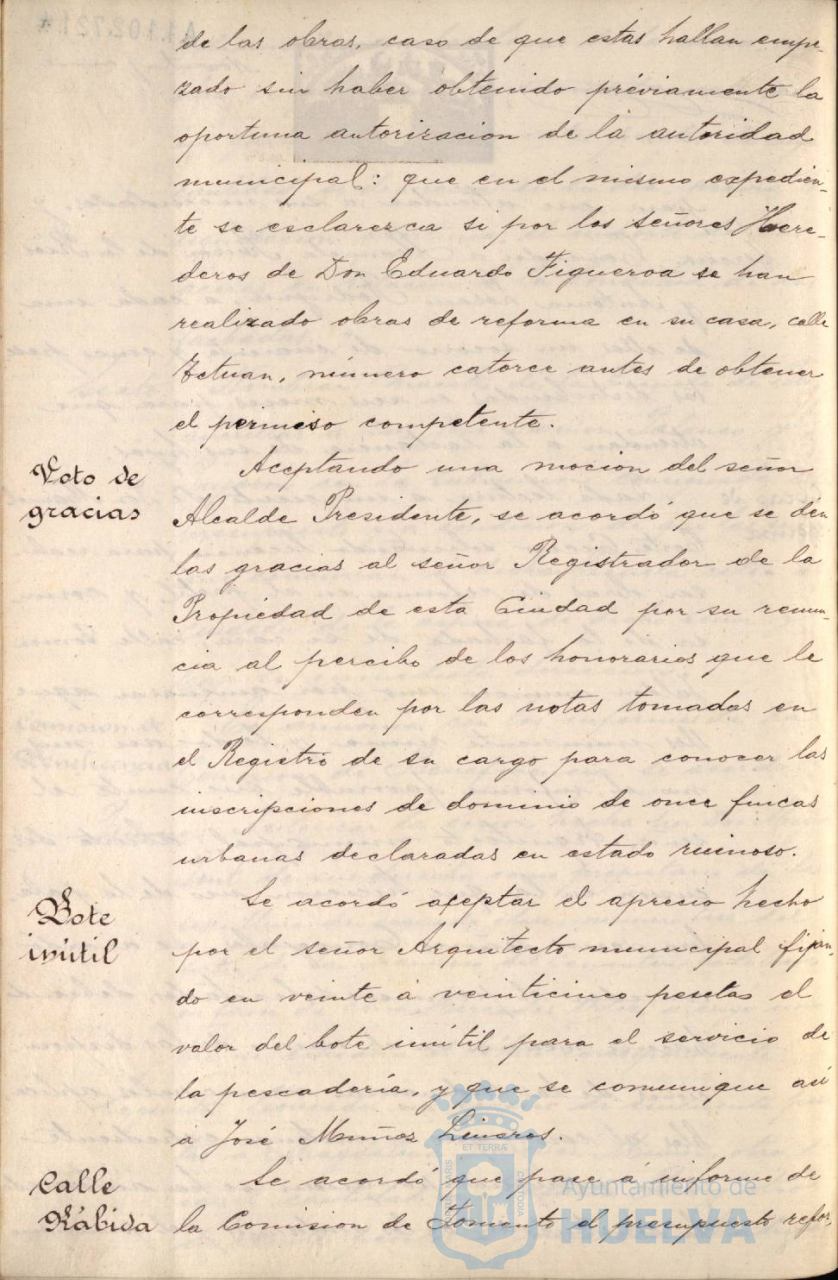 de las obras, caso de que estas hallan empe-
zado sin haber obtenido préviamente la
oportuna autorizacion de la autoridad
municipal: que en el mismo expedien-
te se esclarezca si por los señores Here-
deros de Don Eduardo Figueroa se han
realizado obras de reforma en su casa, calle
Tetuan, número catorce antes de obtener
el permiso competente.
Voto de
gracias
Aceptando una mocion del señor
Alcalde Presidente, se acordó que se den
las gracias al señor Registrador de la
Propiedad de esta Ciudad por su renun-
cia al percibo de los honorarios que le
corresponden por las notas tomadas en
el Registro de su cargo para conocer las
inscripciones de dominio de once fincas
urbanas declaradas en estado ruinoso.
Bote
inútil
Se acordó aceptar el aprecio hecho
por el señor Arquitecto municipal fijan-
do en veinte á veinticinco pesetas el
valor del bote inútil para el servicio de
la pescadería, y que se comunique asi
á José Muñoz Linares.
Calle
Rábida
Se acordó que pase á informe de
la Comision de Fomento el presupuesto refor-
Ayuntamiento de
HUELVA